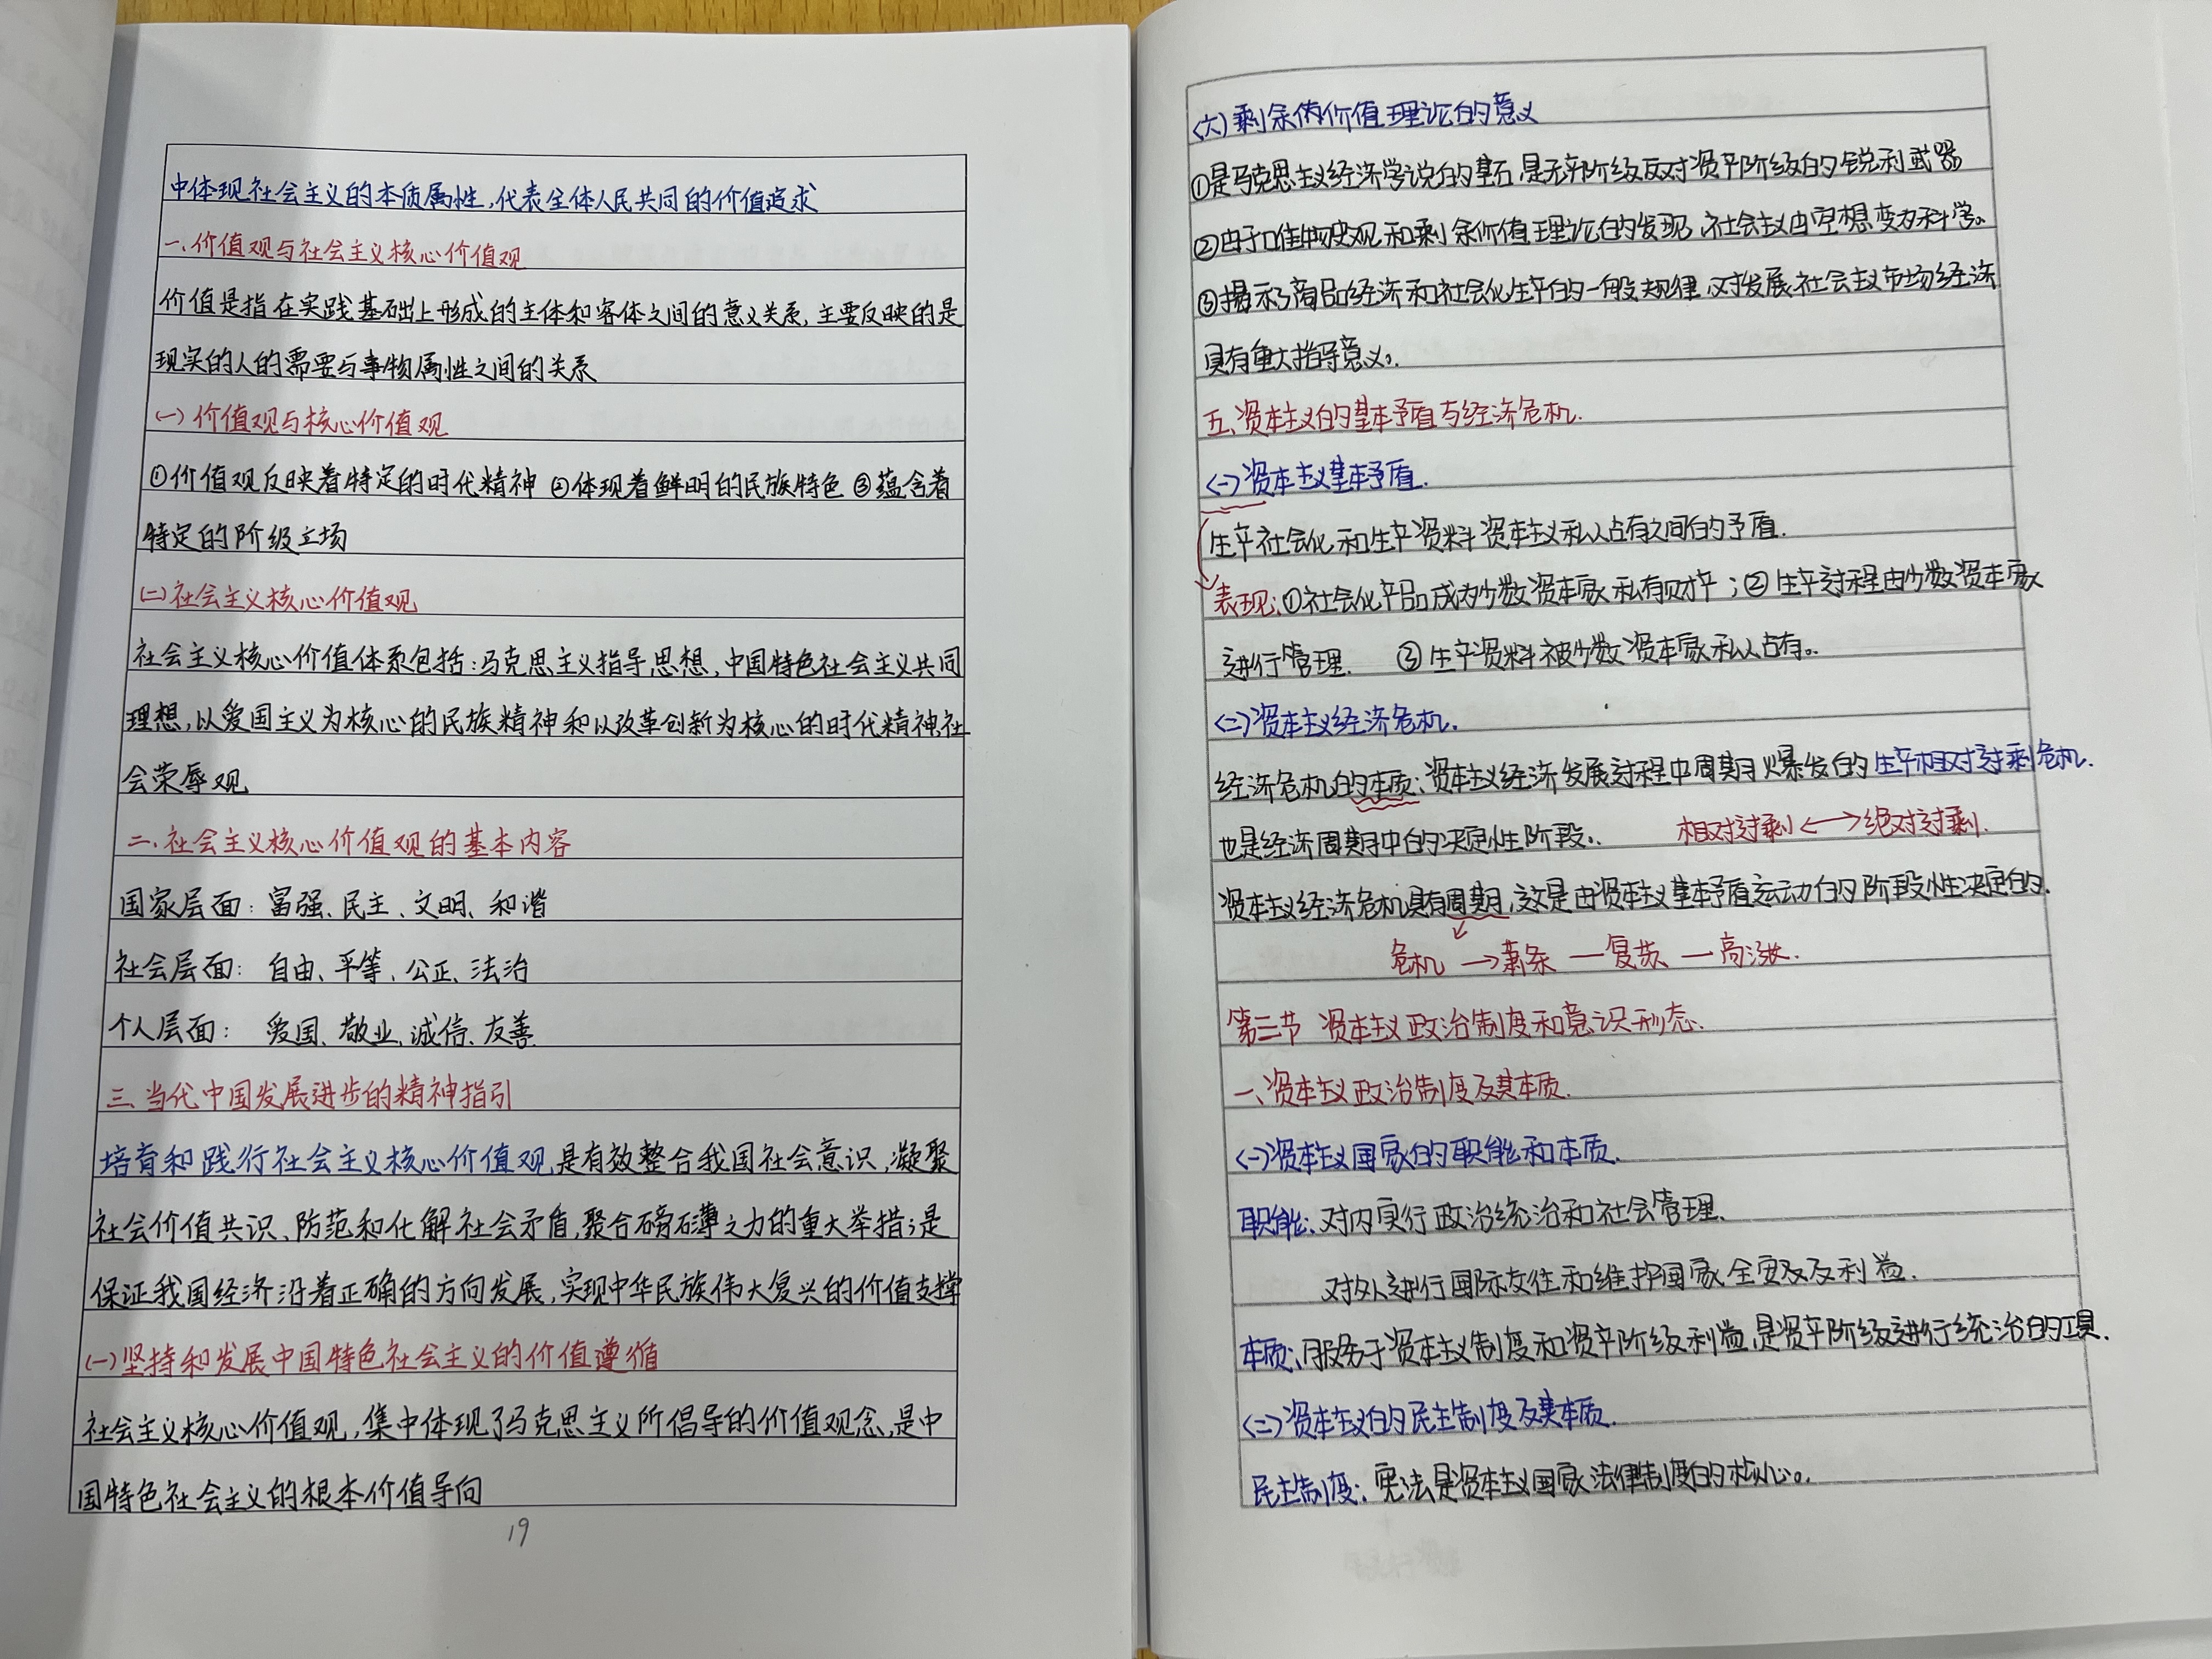 中体现社会主义的本质属性,代表全体人民共同的价值追求
一.价值观与社会主义核心价值观
价值是指在实践基础上形成的主体和客体之间的意义关系,主要反映的是
现实的人的需要与事物属性之间的关系
(一)价值观与核心价值观
①价值观反映着特定的时代精神 ②体现着鲜明的民族特色 ③蕴含着
特定的阶级立场
(二)社会主义核心价值观
社会主义核心价值体系包括:马克思主义指导思想,中国特色社会主义共同
理想,以爱国主义为核心的民族精神和以改革创新为核心的时代精神,社
会荣辱观
二.社会主义核心价值观的基本内容
国家层面: 富强、民主、文明、和谐
社会层面: 自由、平等、公正、法治
个人层面: 爱国、敬业、诚信、友善
三.当代中国发展进步的精神指引
培育和践行社会主义核心价值观,是有效整合我国社会意识,凝聚
社会价值共识、防范和化解社会矛盾,聚合磅礴之力的重大举措;是
保证我国经济沿着正确的方向发展,实现中华民族伟大复兴的价值支撑
(一)坚持和发展中国特色社会主义的价值遵循
社会主义核心价值观,集中体现了马克思主义所倡导的价值观念,是中
国特色社会主义的根本价值导向
19
<六>剩余价值理论的意义
①是马克思主义经济学说的基石,是无产阶级反对资产阶级的锐利武器
②由于唯物史观和剩余价值理论的发现,社会主义由空想变为科学。
③揭示了商品经济和社会化生产的一般规律,对发展社会主义市场经济
具有重大指导意义。
五、资本主义的基本矛盾与经济危机.
<一>资本主义基本矛盾.
生产社会化和生产资料资本主义私人占有之间的矛盾.
表现:①社会化产品成为少数资本家私有财产;②生产过程由少数资本家
进行管理. ③生产资料被少数资本家私人占有。
<二>资本主义经济危机.
经济危机的本质:资本主义经济发展过程中周期爆发的生产相对过剩危机.
也是经济周期中的决定性阶段. 相对过剩<—>绝对过剩.
资本主义经济危机具有周期,这是由资本主义基本矛盾运动的阶段性决定的.
危机→萧条—复苏—高涨.
第三节 资本主义政治制度和意识形态.
一、资本主义政治制度及其本质.
<一>资本主义国家的职能和本质.
职能:对内实行政治统治和社会管理.
对外进行国际交往和维护国家安全及利益.
本质:服务于资本主义制度和资产阶级利益,是资产阶级进行统治的工具.
<二>资本主义的民主制度及其本质.
民主制度:宪法是资本主义国家法律制度的核心。